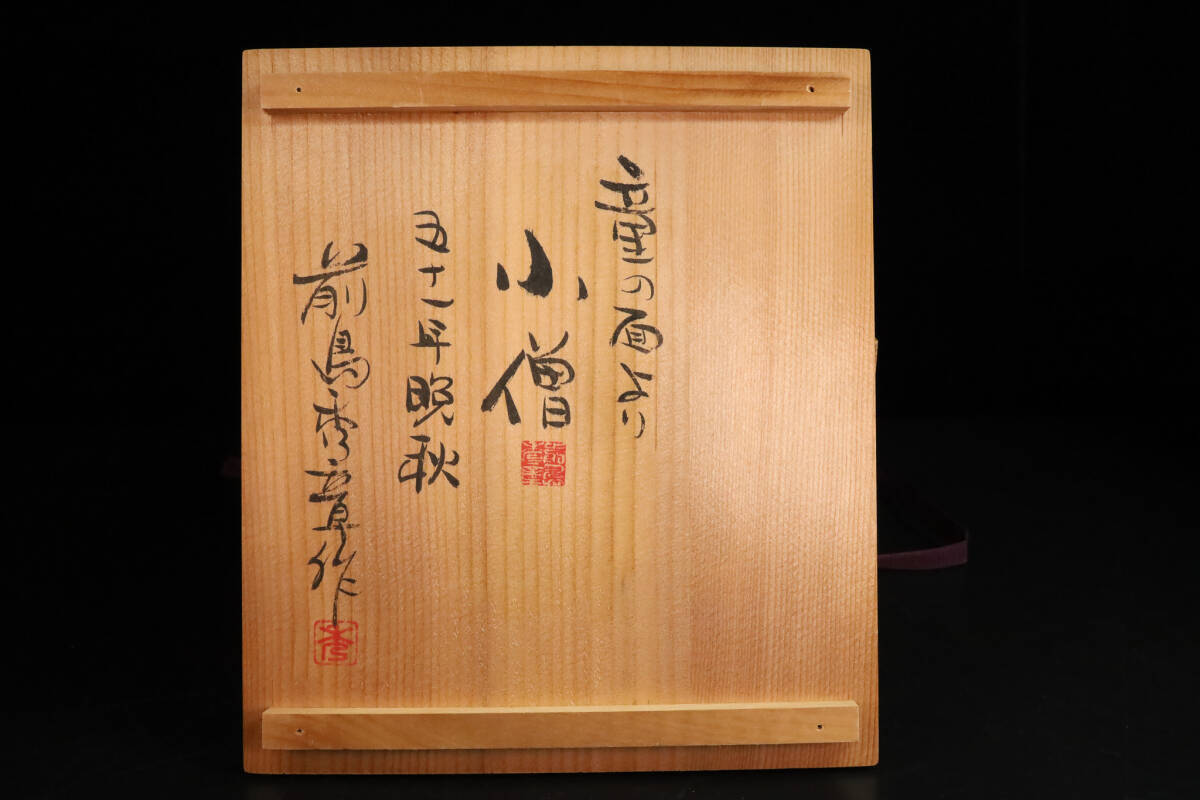 童の面より
小僧
五十一年晩秋
前島秀章作